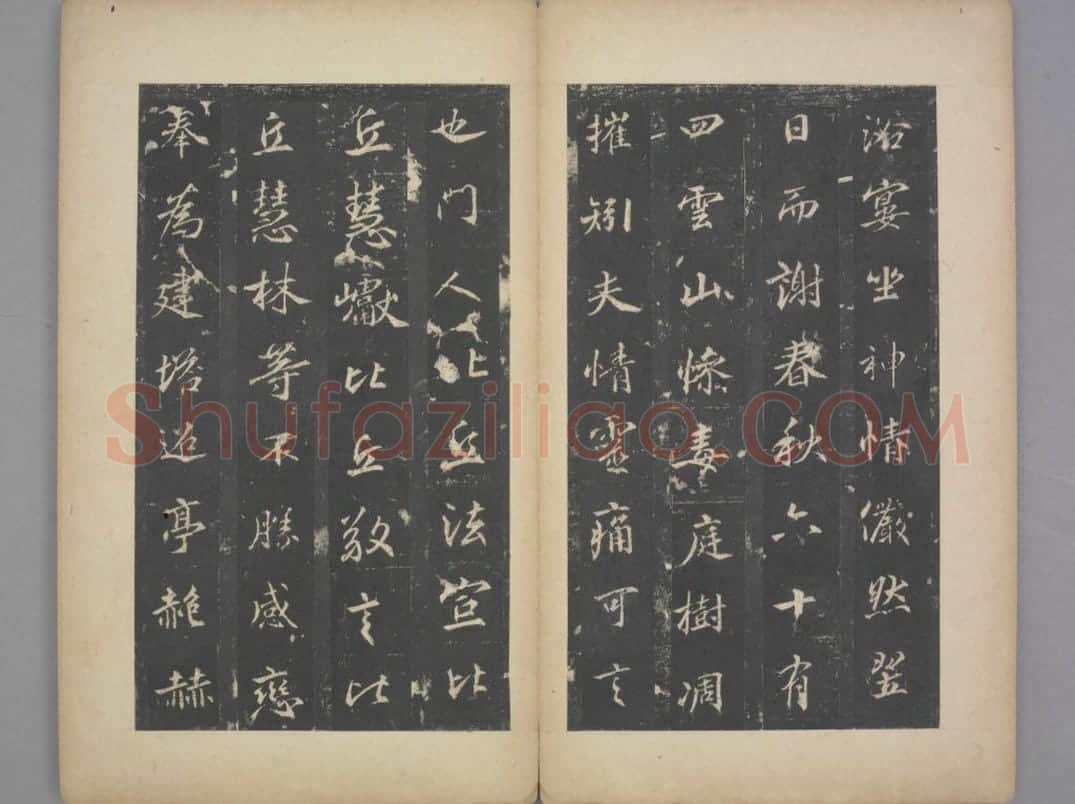 浴宴坐神情儼然翌
日而謝春秋六十有
四雲山慘毒庭樹凋
摧矧夫情靈痛可言
也門人比丘法宣比
丘慧巘比丘敬言比
丘慧林等不勝感戀
奉為建塔迢亭艴赫
Shufaziliao.COM